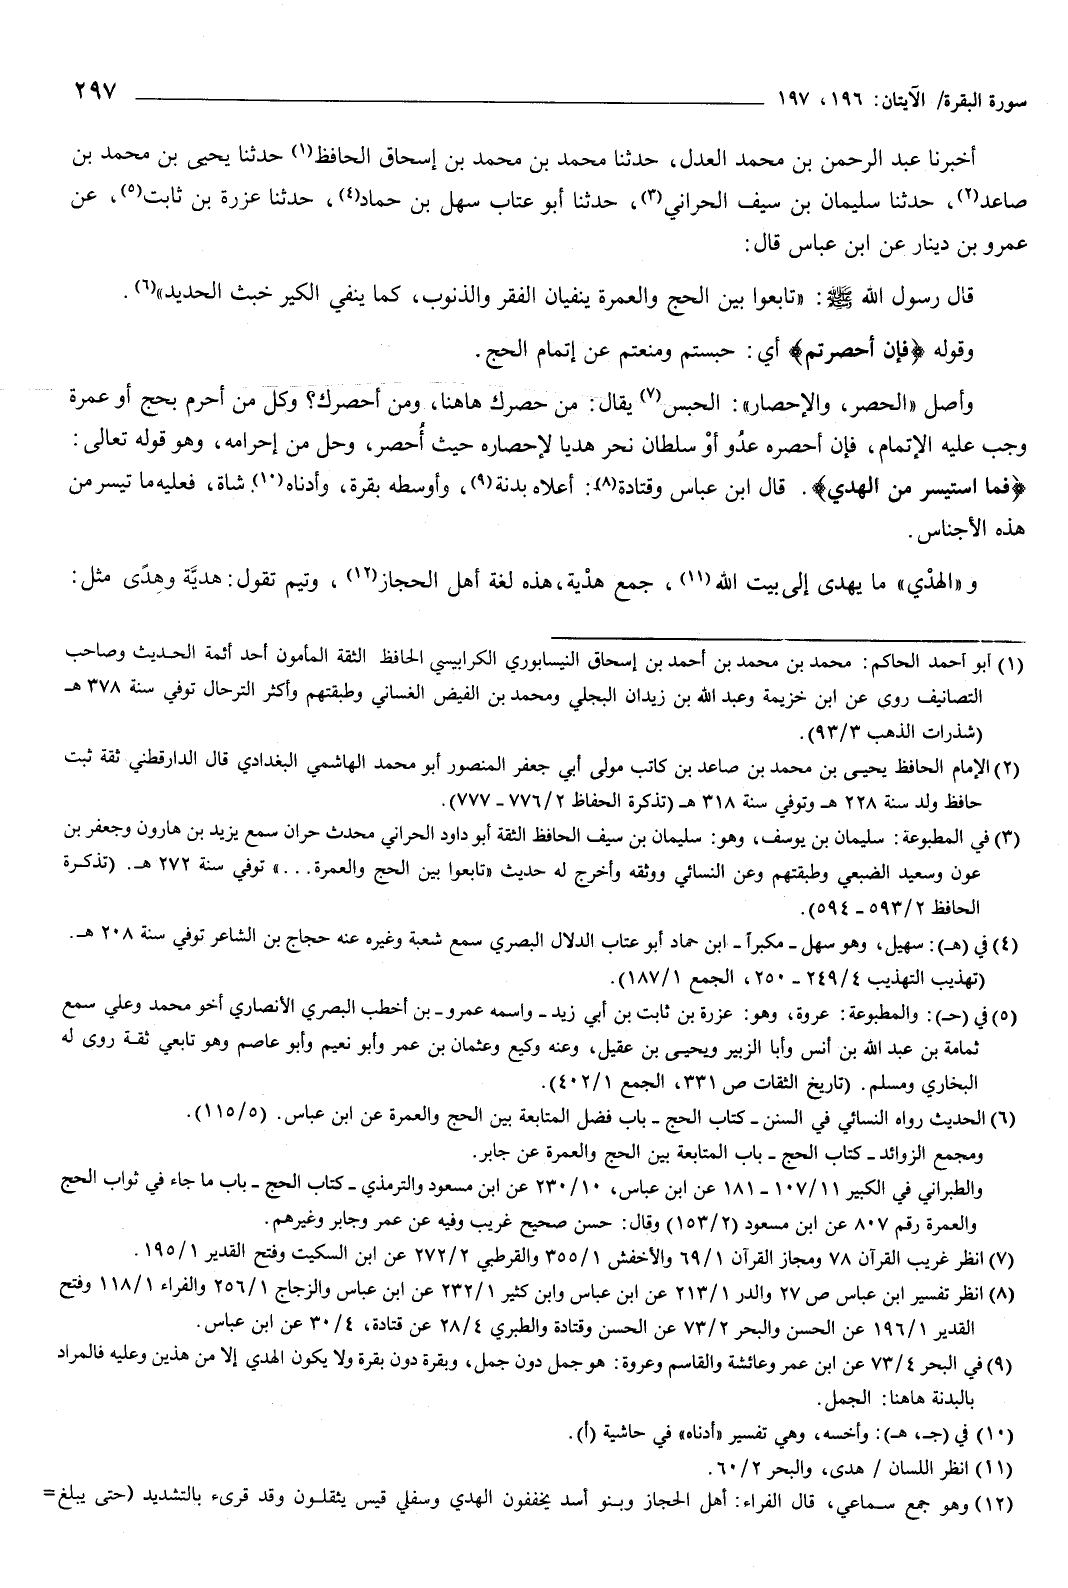 سورة البقرة/ الآيتان: ١٩٦، ١٩٧ ٢٩٧
أخبرنا عبد الرحمن بن محمد العدل، حدثنا محمد بن محمد بن إسحاق الحافظ(١) حدثنا يحيى بن محمد بن
صاعد(٢)، حدثنا سليمان بن سيف الحراني(٣)، حدثنا أبو عتاب سهل بن حماد(٤)، حدثنا عزرة بن ثابت(٥)، عن
عمرو بن دينار عن ابن عباس قال:
قال رسول الله ﷺ: «تابعوا بين الحج والعمرة ينفيان الفقر والذنوب، كما ينفي الكير خبث الحديد»(٦).
وقوله ﴿فإن أحصرتم﴾ أي: حبستم ومنعتم عن إتمام الحج.
وأصل «الحصر، والإحصار»: الحبس(٧) يقال: من حصرك هاهنا، ومن أحصرك؟ وكل من أحرم بحج أو عمرة
وجب عليه الإتمام، فإن أحصره عدُو أوْ سلطان نحر هديا لإحصاره حيث أُحصر، وحل من إحرامه، وهو قوله تعالى:
﴿فما استيسر من الهدي﴾. قال ابن عباس وقتادة(٨): أعلاه بدنة(٩)، وأوسطه بقرة، وأدناه(١٠) شاة، فعليه ما تيسر من
هذه الأجناس.
و «الهدْي» ما يهدى إلى بيت الله(١١)، جمع هدْية، هذه لغة أهل الحجاز(١٢)، وتيم تقول: هديَّة وهدًى مثل:
(١) أبو أحمد الحاكم: محمد بن محمد بن أحمد بن إسحاق النيسابوري الكرابيسي الحافظ الثقة المأمون أحد أئمة الحديث وصاحب
التصانيف روى عن ابن خزيمة وعبد الله بن زيدان البجلي ومحمد بن الفيض الغساني وطبقتهم وأكثر الترحال توفي سنة ٣٧٨ هـ
(شذرات الذهب ٩٣/٣).
(٢) الإمام الحافظ يحيى بن محمد بن صاعد بن كاتب مولى أبي جعفر المنصور أبو محمد الهاشمي البغدادي قال الدارقطني ثقة ثبت
حافظ ولد سنة ٢٢٨ هـ وتوفي سنة ٣١٨ هـ (تذكرة الحفاظ ٧٧٦/٢ - ٧٧٧).
(٣) في المطبوعة: سليمان بن يوسف، وهو: سليمان بن سيف الحافظ الثقة أبو داود الحراني محدث حران سمع يزيد بن هارون وجعفر بن
عون وسعيد الضبعي وطبقتهم وعن النسائي ووثقه وأخرج له حديث «تابعوا بين الحج والعمرة...» توفي سنة ٢٧٢ هـ. (تذكرة
الحافظ ٥٩٣/٢ - ٥٩٤).
(٤) في (هـ): سهيل، وهو سهل - مكبراً - ابن حماد أبو عتاب الدلال البصري سمع شعبة وغيره عنه حجاج بن الشاعر توفي سنة ٢٠٨ هـ.
(تهذيب التهذيب ٢٤٩/٤ - ٢٥٠، الجمع ١٨٧/١).
(٥) في (حـ): والمطبوعة: عروة، وهو: عزرة بن ثابت بن أبي زيد - واسمه عمرو - بن أخطب البصري الأنصاري أخو محمد وعلي سمع
ثمامة بن عبد الله بن أنس وأبا الزبير ويحيى بن عقيل، وعنه وكيع وعثمان بن عمر وأبو نعيم وأبو عاصم وهو تابعي ثقة روى له
البخاري ومسلم. (تاريخ الثقات ص ٣٣١، الجمع ٤٠٢/١).
(٦) الحديث رواه النسائي في السنن - كتاب الحج - باب فضل المتابعة بين الحج والعمرة عن ابن عباس. (١١٥/٥).
ومجمع الزوائد - كتاب الحج - باب المتابعة بين الحج والعمرة عن جابر.
والطبراني في الكبير ١٠٧/١١ - ١٨١ عن ابن عباس، ٢٣٠/١٠ عن ابن مسعود والترمذي - كتاب الحج - باب ما جاء في ثواب الحج
والعمرة رقم ٨٠٧ عن ابن مسعود (١٥٣/٢) وقال: حسن صحيح غريب وفيه عن عمر وجابر وغيرهم.
(٧) انظر غريب القرآن ٧٨ ومجاز القرآن ٦٩/١ والأخفش ٣٥٥/١ والقرطبي ٢٧٢/٢ عن ابن السكيت وفتح القدير ١٩٥/١.
(٨) انظر تفسير ابن عباس ص ٢٧ والدر ٢١٣/١ عن ابن عباس وابن كثير ٢٣٢/١ عن ابن عباس والزجاج ٢٥٦/١ والفراء ١١٨/١ وفتح
القدير ١٩٦/١ عن الحسن والبحر ٧٣/٢ عن الحسن وقتادة والطبري ٢٨/٤ عن قتادة، ٣٠/٤ عن ابن عباس.
(٩) في البحر ٧٣/٤ عن ابن عمر وعائشة والقاسم وعروة: هو جمل دون جمل، وبقرة دون بقرة ولا يكون الهدي إلا من هذين وعليه فالمراد
بالبدنة هاهنا: الجمل.
(١٠) في (جـ، هـ): وأخسه، وهي تفسير «أدناه» في حاشية (أ).
(١١) انظر اللسان / هدى، والبحر ٦٠/٢.
(١٢) وهو جمع سماعي، قال الفراء: أهل الحجاز وبنو أسد يخففون الهدي وسفلي قيس يثقلون وقد قرىء بالتشديد (حتى يبلغ =